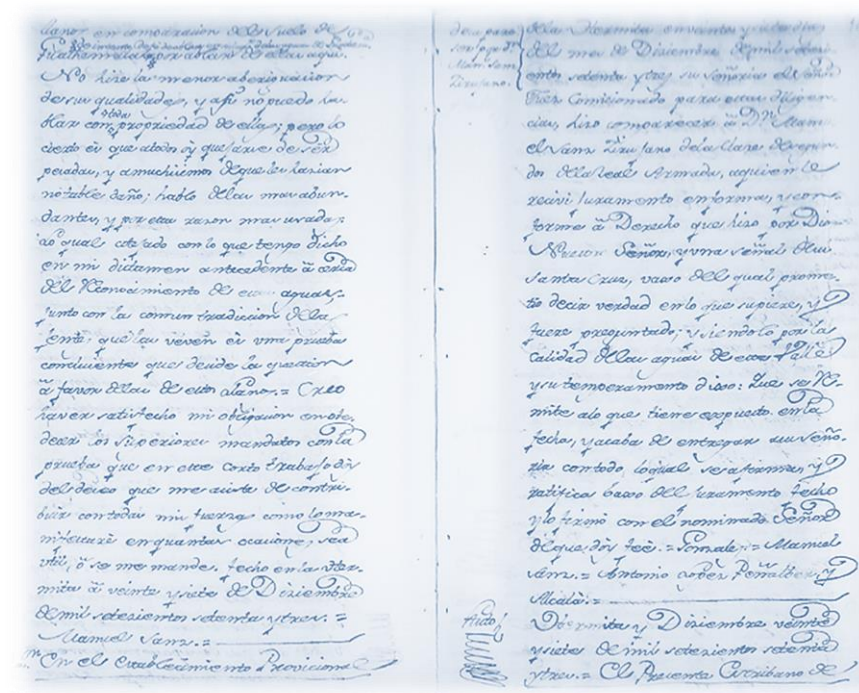 llano, en comparacion del suelo de
No hize la menor aberiguacion
de sus qualidades, y assi no puedo ha-
blar con toda propriedad de ella; pero lo
cierto es que atodos oy quejarse de ser
pesadas, y a muchissimos de que les harian
notable daño; hablo de las mas abun-
dantes, y por esta razon mas usadas;
lo qual cotejado con lo que tengo dicho
en mi dictamen antecedente â cerca
del Reconocimiento de estas aguas,
junto con la comun tradiccion de la
jente, que las veven es una prueba
concluiente que decide la question
â favor de las de estos alanos.= Creo
haver satisfecho mi obligacion en obe-
decer los superiores mandatos con la
prueba que en este corto trabajo dôy
del deseo que me asiste de contri-
buir con todas mis fuerzas como lo ma-
nifestarè en quantas ocasiones, sea
util, ô se me mande. fecho en la Her-
mita â veinte y siete de Diziembre
de mil setezientos setenta y tres. =
Manuel Sanz. =
En el Establecimiento Provicional
Declara-
cion por Dn.
Manl. Sanz
Zirujano.
de la Hermita en veinte y siete dias
del mes de Diziembre de mil seteci-
entos setenta y tres su señoria el Señor
Juez Comicionado para estas diligen-
cias, hizo comparecer â Dn. Manu-
el Sanz Zirujano de la Clase de segun-
dos de la Real Armada, a quien le
recivi juramento en forma, y con-
forme â Derecho que hizo por Dios
Nuestro Señor, y una señal de su
santa Cruz, vaxo del qual prome-
tio decir verdad en lo que supiere, y
fuere preguntado; y siendolo por la
Calidad de las aguas de este Valle
y su temperamento dixo: Que se Re-
mite alo que tiene expuesto en la
fecha, y acaba de entregar a su seño-
ria con todo lo qual se afirma, y
ratifica baxo del juramento fecho
y lo firmò con el nominado Señor
de que doy feè. = Gonzale, = Manuel
Sanz. = Antonio Peñalber, y
Alcalà. =
Auto
Hermita y Diziembre veinte
y siete de mil setezientos setenta
y tres. = El Presente Escribano de